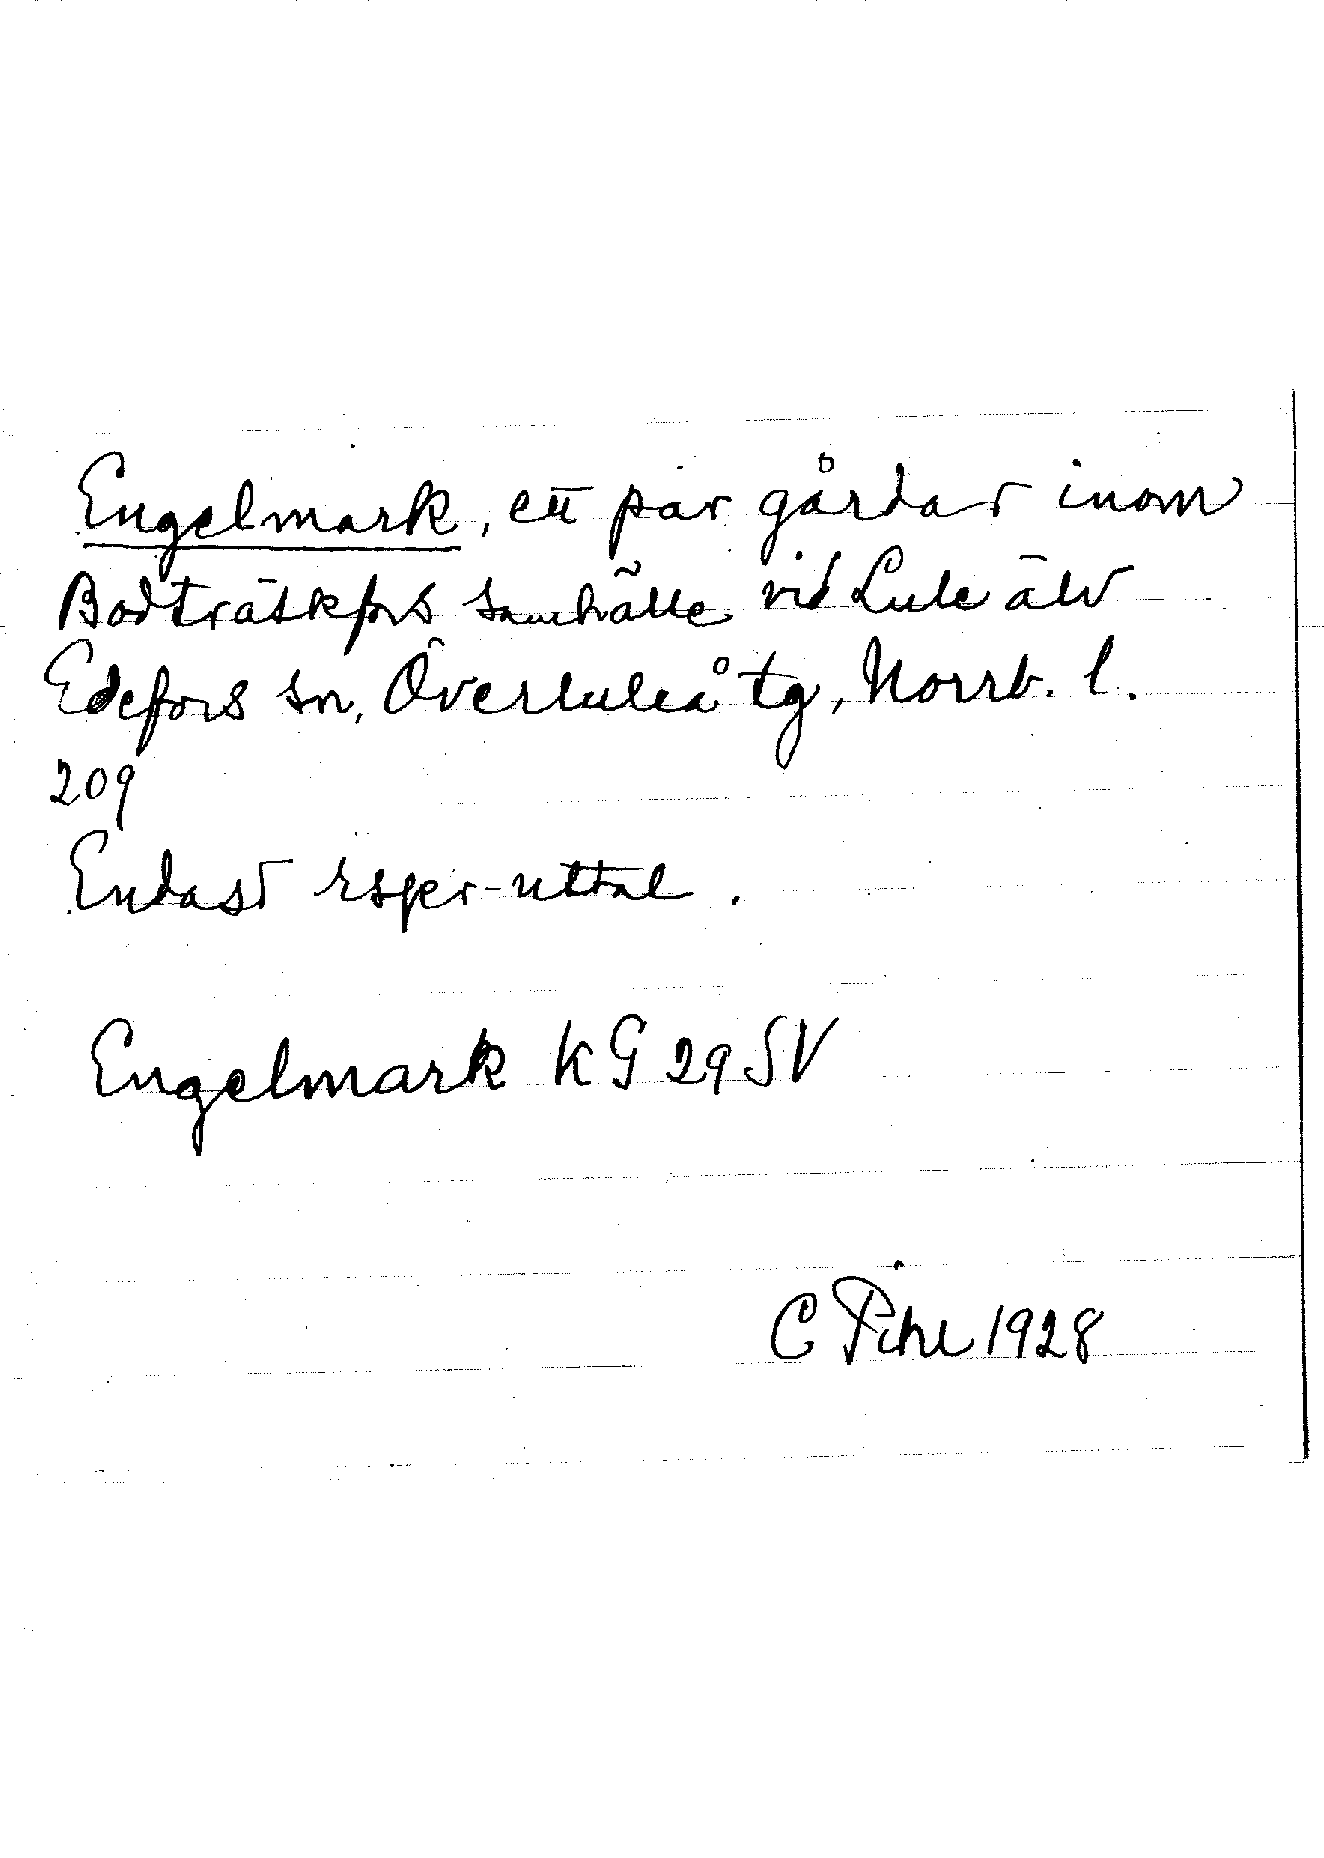 Engelmark, ett par gårdar inom
Bodträskfors samhälle vid Lule älv
Edefors sn, Överluleå tg, Norrb. l.
209
Endast rspr-uttal.
Engelmark KG 29 SV
C Pihl 1928